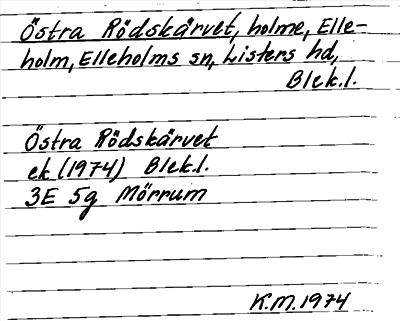 Östra Rödskärvet, holme, Elle-
holm, Elleholms sn, Listers hd,
Blek.l.
Östra Rödskärvet
ek (1974) Blek.l.
3E 5g Mörrum
K.M. 1974